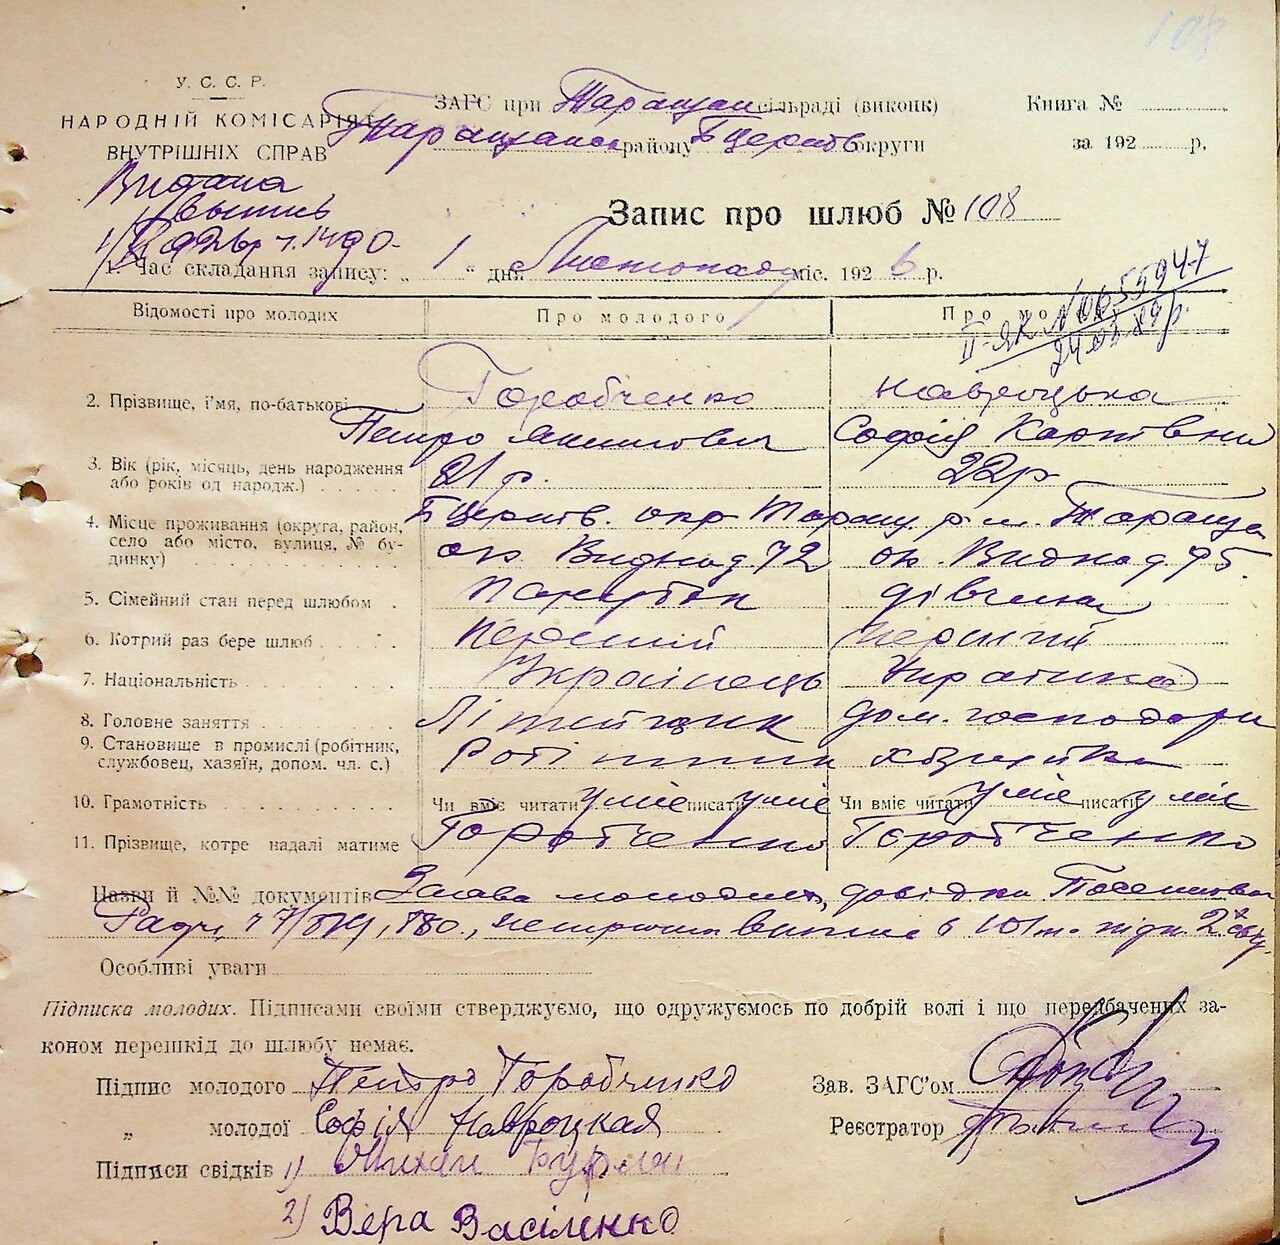 108
У. С. С. Р.
НАРОДНІЙ КОМІСАРІЯТ
ВНУТРІШНІХ СПРАВ
ЗАГС при Таращан сільраді (виконк)
Таращанс району Бцерків округи
Книга №
за 192 р.
Видана
Запис про шлюб № 108
1. Час складання запису: „ 1 “ дня Листопаду міс. 1926 р.
Відомості про молодих Про молодого Про мо
ІІ-ЯК №065594-7
2. Прізвище, і'мя, по-батькові Горобченко Навроцька
Петро Якимович Софія Карпівни
3. Вік (рік, місяць, день народження
або років од народж.) 21 р. 22 р
4. Місце проживання (округа, район,
село або місто, вулиця, № бу-
динку)
Бцерків. окр Таращ. р. м. Тараща
72 95.
5. Сімейний стан перед шлюбом парубок дівчина
6. Котрий раз бере шлюб первший первший
7. Національність Українець Українка
8. Головне заняття Літейщик дом. господарк
9. Становище в промислі (робітник,
службовец, хазяїн, допом. чл. с.) Робітник хазяйка
10. Грамотність Чи вміє читати уміє писати уміє Чи вміє читати уміє писати уміє
11. Прізвище, котре надалі матиме Горобченко Горобченко
Назви й №№ документів Заява молодих, довідки
Особливі уваги
Підписка молодих. Підписами своїми стверджуємо, що одружуємось по добрій волі і що передбачених за-
коном перешкід до шлюбу немає.
Підпис молодого Петро Горобченко Зав. ЗАГС'ом
„ молодої Софія Навроцкая Реєстратор
Підписи свідків 1)
2) Вера Василенко